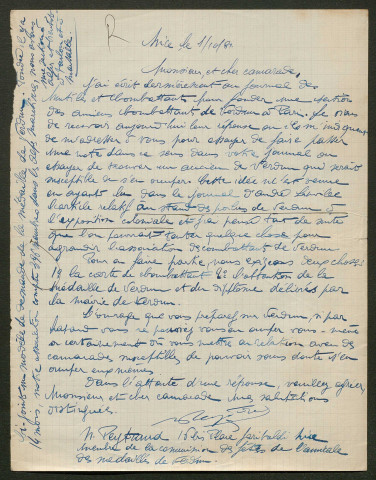 R
Nice le 1/10/31
Monsieur et cher camarade,
J'ai écrit dernièrement au journal des
Mutilés et Combattants pour fonder une section
des anciens combattants de Verdun à Paris. Je viens
de recevoir aujourd'hui leur réponse on m'indique
de m'adresser à vous pour essayer de faire passer
une note dans ce sens dans votre journal ou
essayer de trouver un ancien de Verdun qui serait
susceptible de s'en occuper. Cette idée m'est venue
en ayant lu dans le journal d'André
l'article relatif au stand des de Verdun à
l'exposition coloniale et j'ai pensé tout de suite
que l'on pourrait tenter quelque chose pour
agrandir l'association des combattants de Verdun.
Pour en faire partie, nous exigeons deux choses
1º la carte de combattant 2º l'attestation de la
médaille de Verdun et du diplôme délivrés par
la mairie de Verdun.
L'ouvrage que vous préparez sur Verdun, si par
hasard vous ne pouvez vous en occuper vous-même
certainement vous mettre en relation avec des
camarades susceptibles de pouvoir sans doute s'en
occuper eux mêmes.
Dans l'attente d'une réponse, veuillez agréer,
Monsieur et cher camarade mes salutations
distinguées.
M. Peytraud 16 bis Place Garibaldi Nice
membre de la commission des fêtes de l'amicale
des médaillés de Verdun.
Ci-joint un modèle de demande de la médaille de Verdun, fondée il y a
14 mois, notre association compte 348 membres dans les Alpes Maritimes, nous avons
médaille